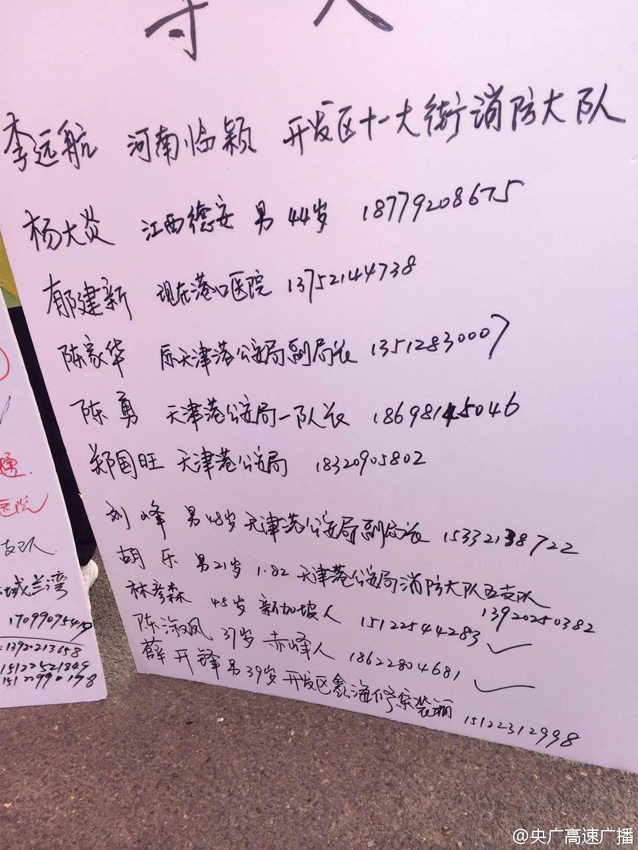 寻人
李远航 河南临颖 开发区十一大街消防大队
杨大炎 江西德安 男 44岁 18779208675
郁建新 现在港口医院 13752144738
陈家华 原天津港公安局副局长 13512830007
陈勇 天津港公安局一队长 18698145046
郑国旺 天津港公安局 18320905802
刘峰 男 48岁 天津港公安局副局长 15332138722
胡乐 男 21岁 1.82 天津港公安局消防大队五支队 13920250382
林彦森 45岁 新加坡人 15122544283 ✓
陈淑凤 37岁 赤峰人 18622804681 ✓
薛开锋 男 39岁 开发区鑫海 15122312998
医院
支队
域兰湾
13921213658
15122521849
15122990178
@央广高速广播